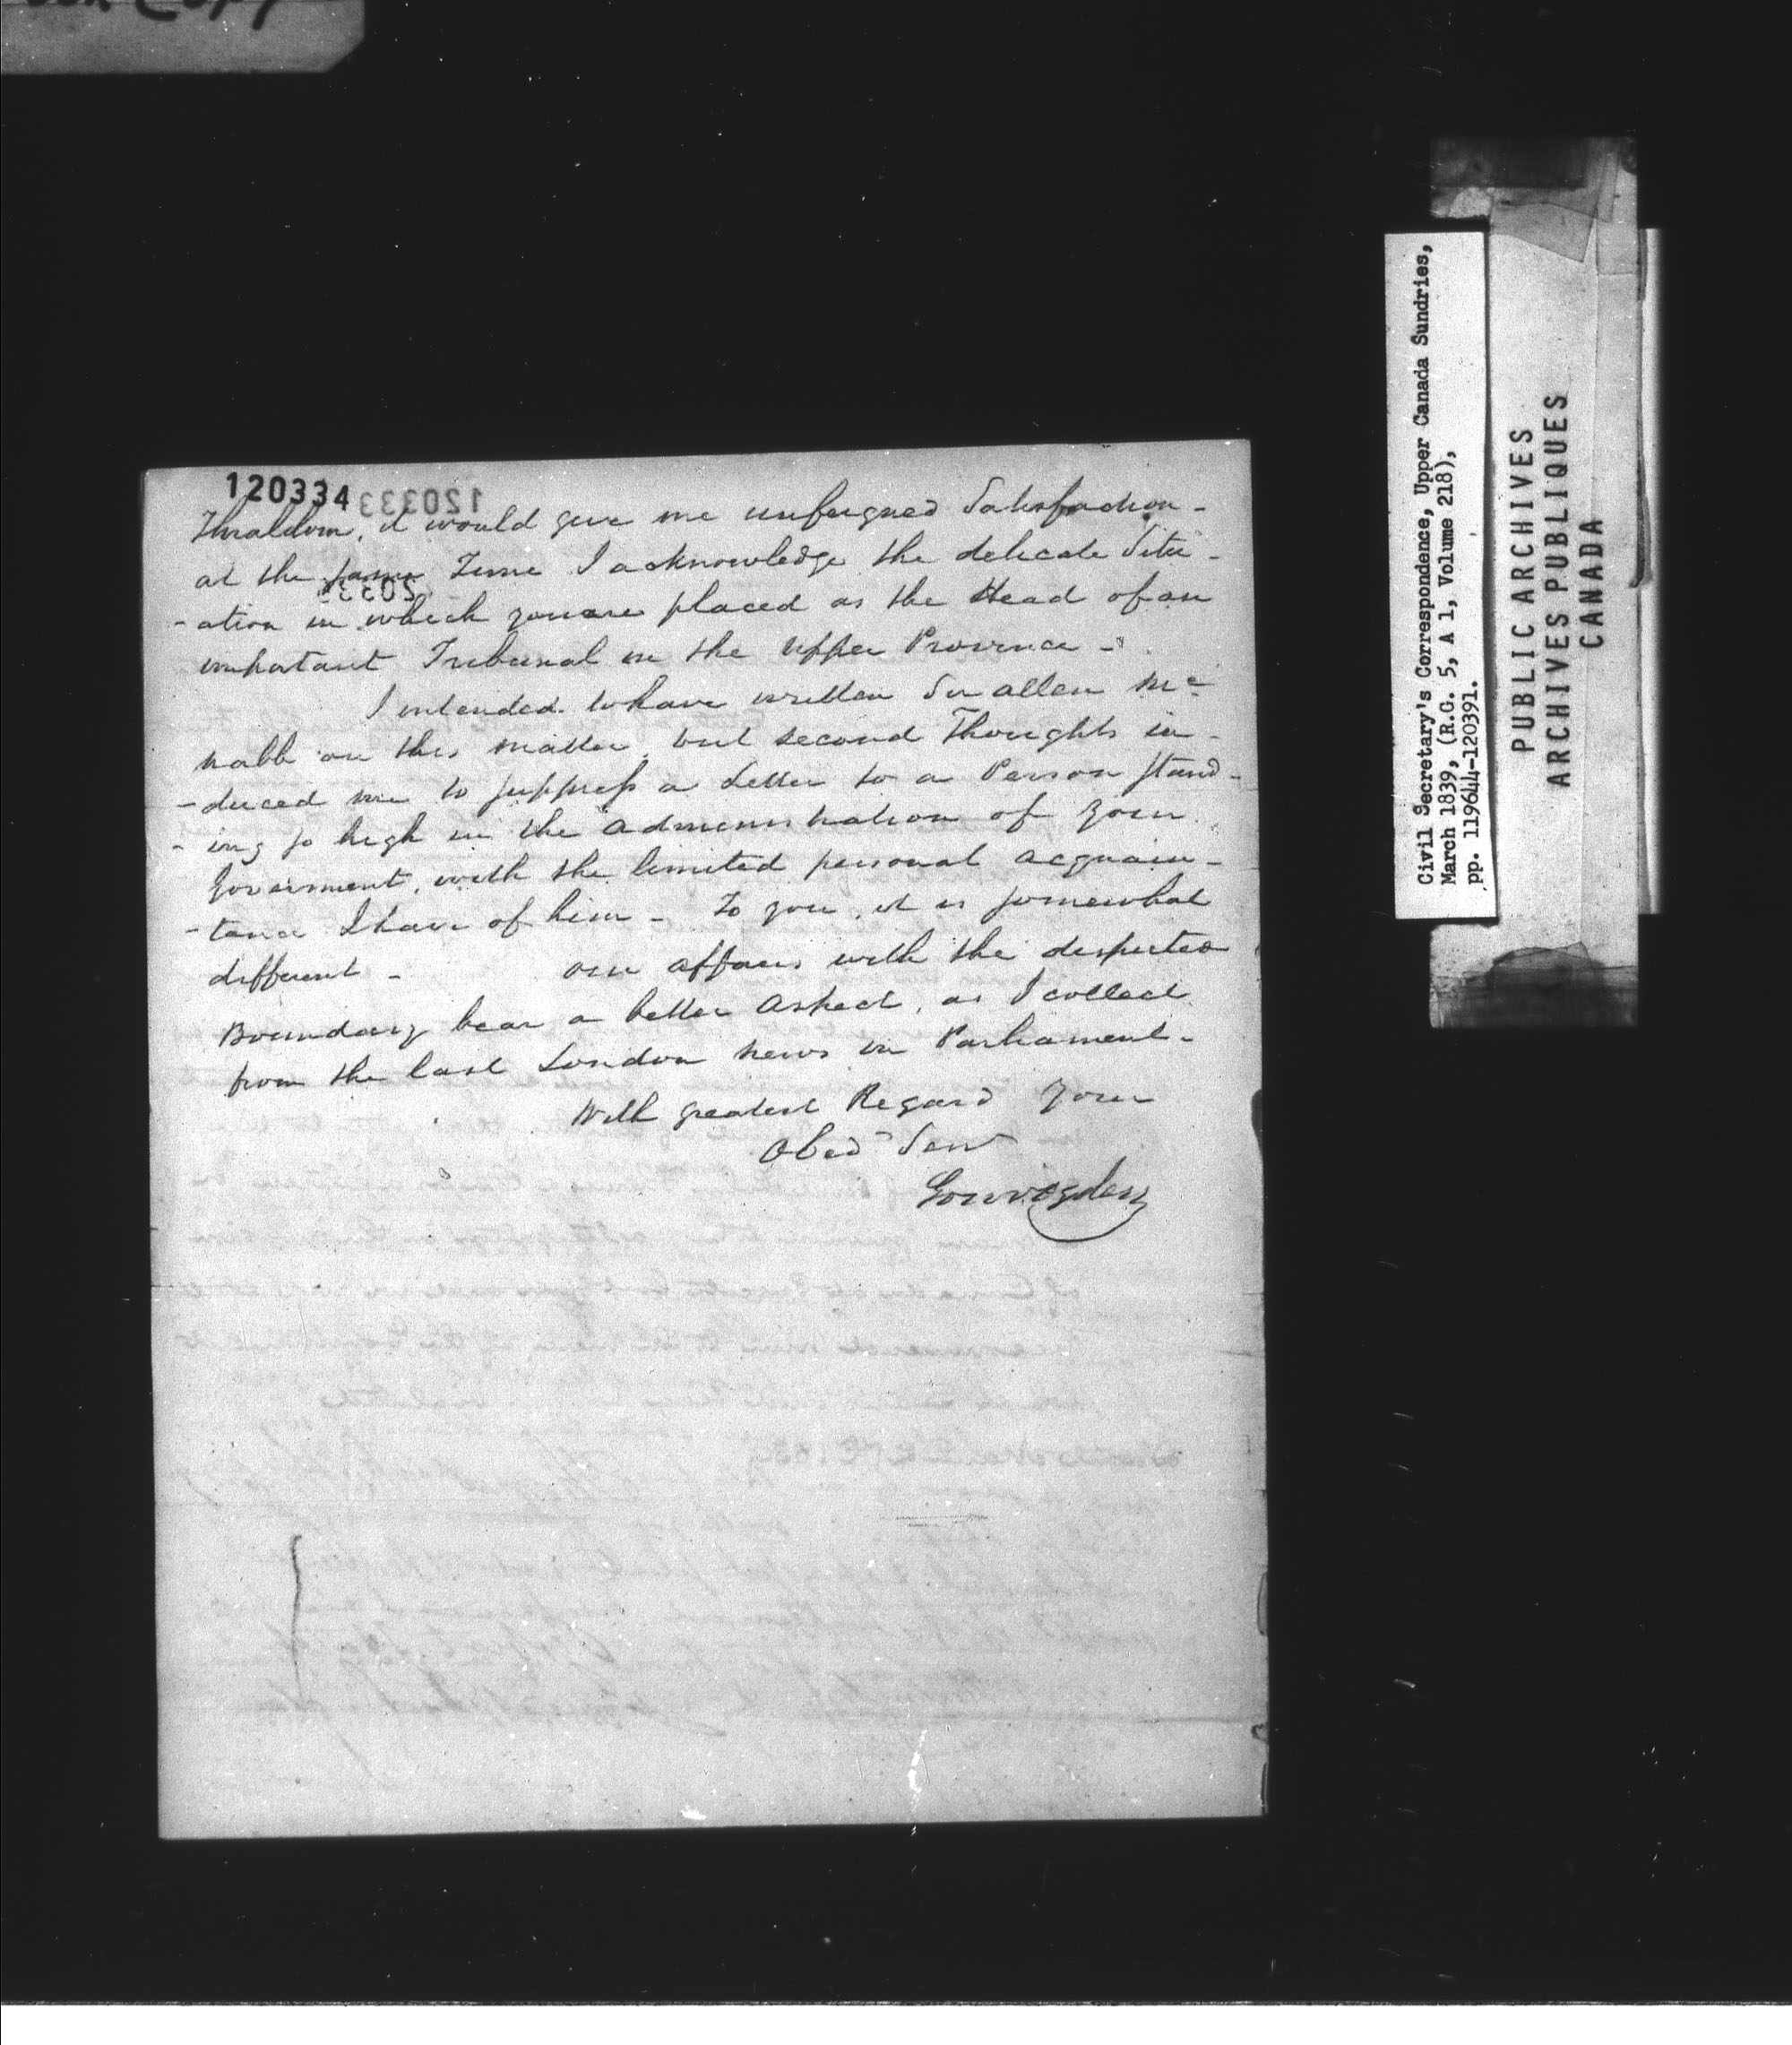 120334
Thraldom, it would give me unfeigned Satisfaction -
at the same Time I acknowledge the delicate Situ -
- ation in which you are placed as the Head of an
important Tribunal in the Upper Province -
I intended to have written Sir Allan Mc
nabb on this matter, but second Thoughts in -
- duced me to suppress a Letter to a Person stand -
- ing so high in the Administration of your
Government, with the limited personal acquain -
- tance I have of him - To you, it is somewhat
different - our affairs with the disputed
Boundary bear a better Aspect, as I collect
from the last London news in Parliament -
With greatest Regard your
Obed Serv
Civil Secretary's Correspondence, Upper Canada Sundries,
March 1839, (R.G. 5, A 1, Volume 218),
pp. 119644-120391.
PUBLIC ARCHIVES
ARCHIVES PUBLIQUES
CANADA